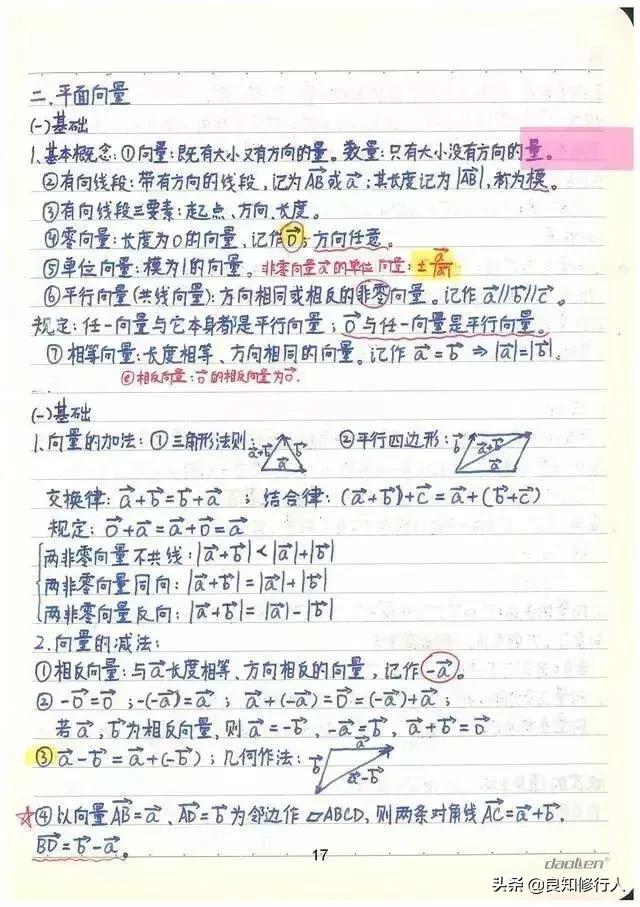 二.平面向量
(一)基础
1.基本概念:①向量:既有大小又有方向的量。数量:只有大小没有方向的量。
②有向线段:带有方向的线段,记为AB⃗或a⃗;其长度记为|AB⃗|,称为模。
③有向线段三要素:起点、方向、长度。
④零向量:长度为0的向量,记作0⃗;方向任意。
⑤单位向量:模为1的向量。非零向量a⃗的单位向量:±a⃗/|a⃗|
⑥平行向量(共线向量):方向相同或相反的非零向量。记作a⃗∥b⃗∥c⃗。
规定:任一向量与它本身都是平行向量;0⃗与任一向量是平行向量。
⑦相等向量:长度相等、方向相同的向量。记作a⃗=b⃗⇒|a⃗|=|b⃗|.
⑧相反向量:0⃗的相反向量为0⃗.
(一)基础
1.向量的加法:①三角形法则: a⃗+b⃗ b⃗ a⃗ ②平行四边形: b⃗ a⃗+b⃗ a⃗
交换律:a⃗+b⃗=b⃗+a⃗;结合律:(a⃗+b⃗)+c⃗=a⃗+(b⃗+c⃗)
规定:0⃗+a⃗=a⃗+0⃗=a⃗
两非零向量不共线:|a⃗+b⃗|<|a⃗|+|b⃗|
两非零向量同向:|a⃗+b⃗|=|a⃗|+|b⃗|
两非零向量反向:|a⃗+b⃗|=|a⃗|-|b⃗|
2.向量的减法:
①相反向量:与a⃗长度相等、方向相反的向量,记作-a⃗。
②-0⃗=0⃗;-(-a⃗)=a⃗;a⃗+(-a⃗)=0⃗=(-a⃗)+a⃗;
若a⃗,b⃗为相反向量,则a⃗=-b⃗,-a⃗=b⃗,a⃗+b⃗=0⃗
③a⃗-b⃗=a⃗+(-b⃗);几何作法: b⃗ a⃗ a⃗-b⃗
☆④以向量AB⃗=a⃗、AD⃗=b⃗为邻边作▱ABCD,则两条对角线AC⃗=a⃗+b⃗,
BD⃗=b⃗-a⃗。
17
daolen
头条@良知修行人